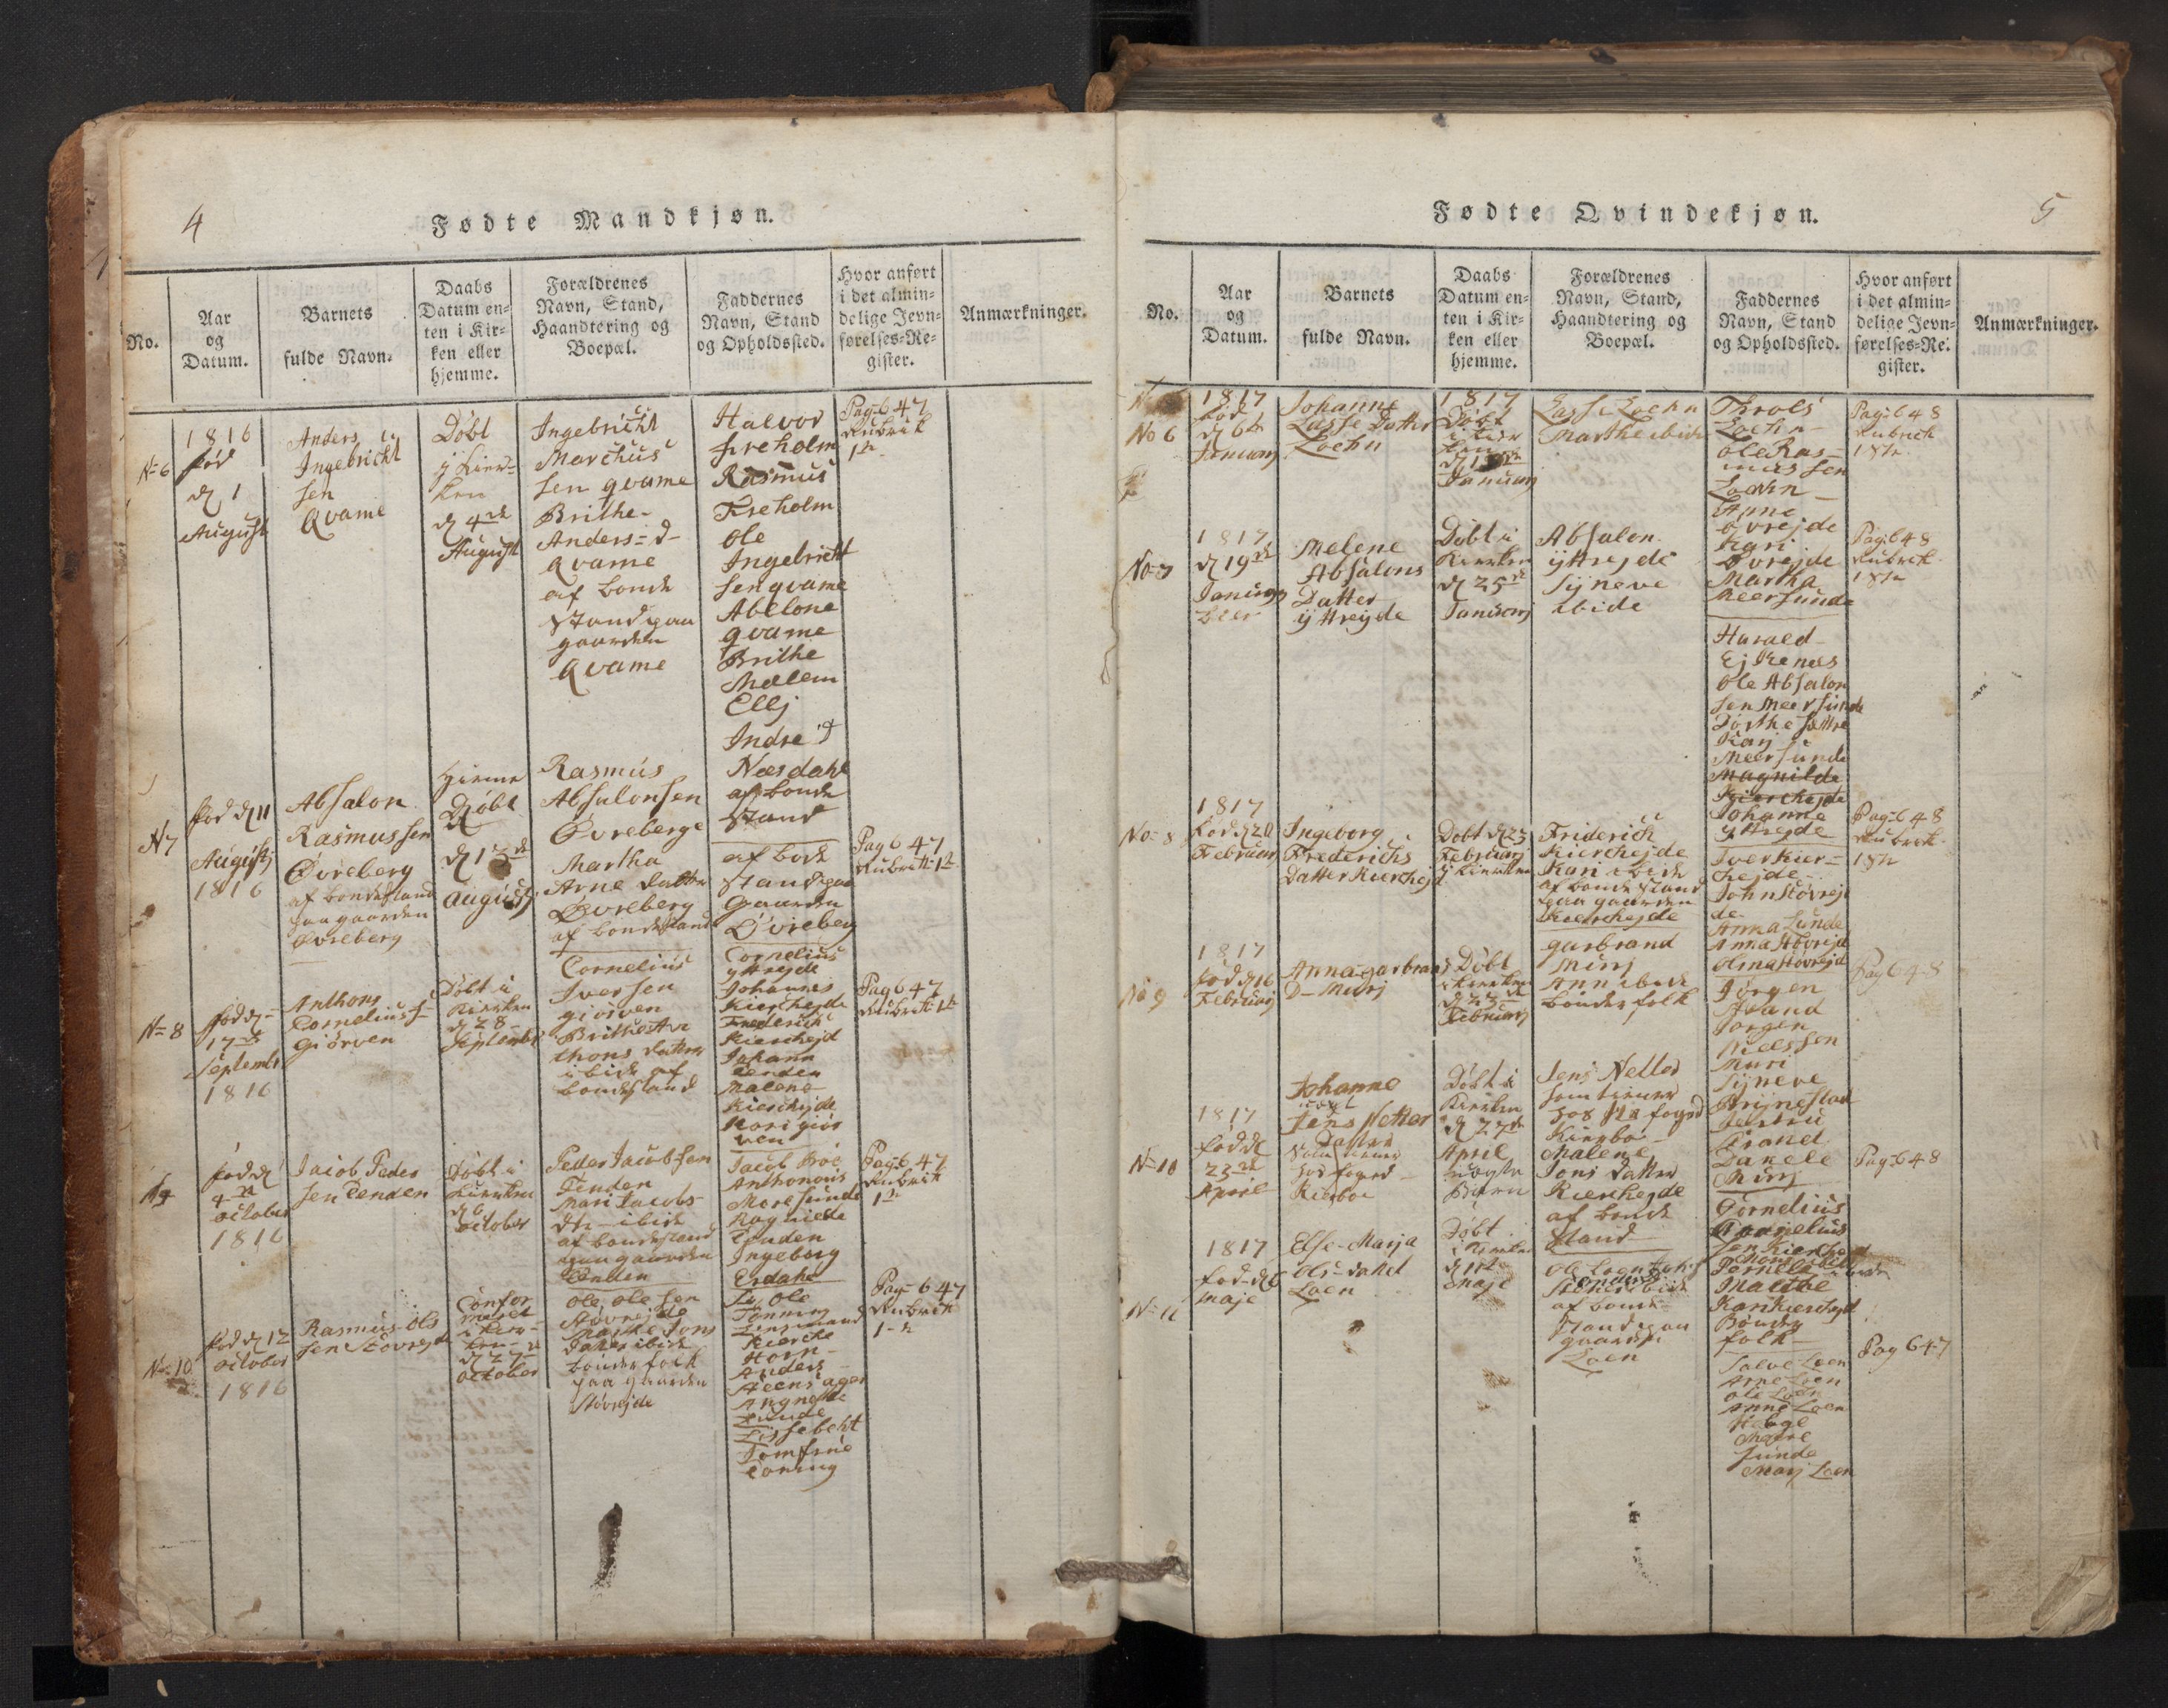 4
Fødte Mandkjøn.
No.
Aar
og
Datum.
Barnets
fulde Navn.
Daabs
Datum en-
ten i Kir-
ken eller
hjemme.
Forældrenes
Navn, Stand,
Haandtering og
Boepæl.
Faddernes
Navn, Stand
og Opholdssted.
Hvor anført
i det almin-
delige Jevn-
førelses-Re-
gister.
Anmærkninger.
No 6
1816
fød
d 1
August
Anders
Ingebricht
sen
Qvame
Døbt
j Kier-
ken
d 4de
August
Ingebricht
Marchus
sen qvame
Brithe
Anders-d-
Qvame
af bonde
Stand paa
gaarden
Qvame
Halvor
freholm
Rasmus
Freholm
Ole
Ingebricht
sen qvame
Abelone
qvame
Brithe
Mælem
Ellj
Indre
Næsdahl
af bonde
Stand
Pag 647
Rubrik
1te
N 7
fød d 11
August
1816
Absalon
Rasmussen
Øvreberg
af bondestand
paa gaarden
Øvreberg
Hieme
Døbt
d 13de
August
Rasmus
Absalonsen
Øvreberge
Martha
Arne datter
Øvreberg
af bondestand
af bode
Stand paa
Gaarden
Øvreberg
Pag 647
Rubrik 1te
N 8
fød d
17de
Septembr
1816
Anthons
Cornelius s
Giørven
Døbt i
Kierken
d 28
September
Cornelius
Iversen
giørven
Brithe An
thons datter
ibide af
bondestand
Cornelius
yttrejde
Johannes
Kierchejde
Frederich
Kierchejd
Johann
Tenden
Malene
Kierchejde
Kari giør
ven
Pag 647
Rubrik 1te
N 9
fød d
4de
october
1816
Jacob Peder
sen Tenden
Døbt i
Kierken
d 6
october
Peder Jacobsen
Tenden
Mari Jacobs
dtr ibide
af bondestand
paa gaarden
Tenden
Jacob
Anthonius
More sunde
Ragnilde
Tenden
Ingeborg
Erdahl
Pag 647
Rubrik
1te
N 10
fød d 12
october
1816
Rasmus ols
sen Støvrejde
Confor
meret
i Kier-
ken
d 27
october
Ole olesen
Støvrejde
Marthe Jons
datter ibide
bonderfolk
paa gaarden
Støvrejde
Ole
Tonning
Lensmand
Kierche
Horn
Anders
Steensager
Angnethe
Lunde
Lissebeht
Jomfrue
Toning
Pag 647
Rubrik
1te
5
Fødte Qvindekjøn.
No.
Aar
og
Datum.
Barnets
fulde Navn.
Daabs
Datum en-
ten i Kir-
ken eller
hjemme.
Forældrenes
Navn, Stand,
Haandtering og
Boepæl.
Faddernes
Navn, Stand
og Opholdssted.
Hvor anført
i det almin-
delige Jevn-
førelses-Re-
gister.
Anmærkninger.
No 6
1817
fød
d 6te
Januarj
Johanne
Lasse Datter
Loehn
1817
Døbt
i Kier
ken
Januarj
Lasse Loehn
Marthe ibide
Throls
Loehn
Ole Ras-
mus sen
Loehn
Anne
øvrejde
Kari
Øvrejde
Martha
Meersunde
Pag 648
Rubrik
1ste
No 7
1817
d 19de
Januarj
Melene
Absalons
Datter
yttrejde
Døbt i
Kierken
d 25de
Januarj
Absalon
yttrejde
Sijneve
ibide
Harald
Ejkenæs
Ole Absalon
sen Meersunde
Dorthe
Kary
Meersunde
Magnilde
Kierchejde
Johanne
yttrejde
Pag 648
Rubrik
1ste
No 8
1817
fød d 20
Februarj
Ingeborg
Frederichs
Datter Kierchejd
Døbt d 23
Februarj
i Kierken
Friderich
Kierchejde
Kari ibide
af bonde stand
paa gaarden
Kierchejde
Iver Kier-
chejde
John Støvrej
de
Anna Lunde
Anna Støvrejd
Olina Støvrejd
Pag 648
Rubrik
1ste
No 9
1817
fød d 16
Februarj
Anna garbrand
D- Murj
Døbt
i Kierken
d 23de
Februarj
garbrand
Murj
Ann ibide
bonderfolk
Jørgen
Strand
Jørgen
Nielssen
Muri
Sijneve
Brijnestad
Strand
Danele
Murj
Pag 648
No 10
1817
fød d
23de
April
Johanne
uægt
Jens Netter
Datter
som tiener
hos foged
Kierboe
Døbt i
Kierken
d 27de
April
uægte
Barn
Jens Netter
som tiener
hos Hr foged
Kierboe
Malene
Jons datter
Kierchejde
af bonde
Stand
Cornelius
Cornelius
sen Kierchejd
Pernele
Malene
Kari Kierchejd
Bonder
folk
Pag 648
No 11
1817
fød d 6
Maje
Else Marja
Ols datter
Loen
Døbt
i Kierken
Maje
Ole Loen
ibide
af bonde-
stand paa
gaarden
Loen
Salve Loen
Arne Loen
ole Loen
Anne Loen
Sunde
Marj Loen
Pag 647